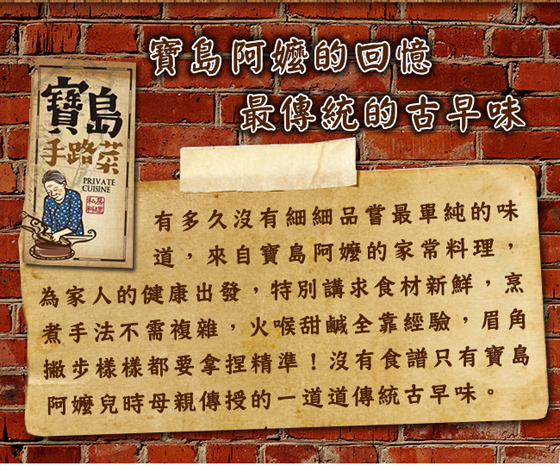 寶島阿嬤的回憶
最傳統的古早味
寶島
手路菜
PRIVATE
CUISINE
私房
料理
有多久沒有細細品嘗最單純的味
道，來自寶島阿嬤的家常料理，
為家人的健康出發，特別講求食材新鮮，烹
煮手法不需複雜，火喉甜鹹全靠經驗，眉角
撇步樣樣都要拿捏精準！沒有食譜只有寶島
阿嬤兒時母親傳授的一道道傳統古早味。